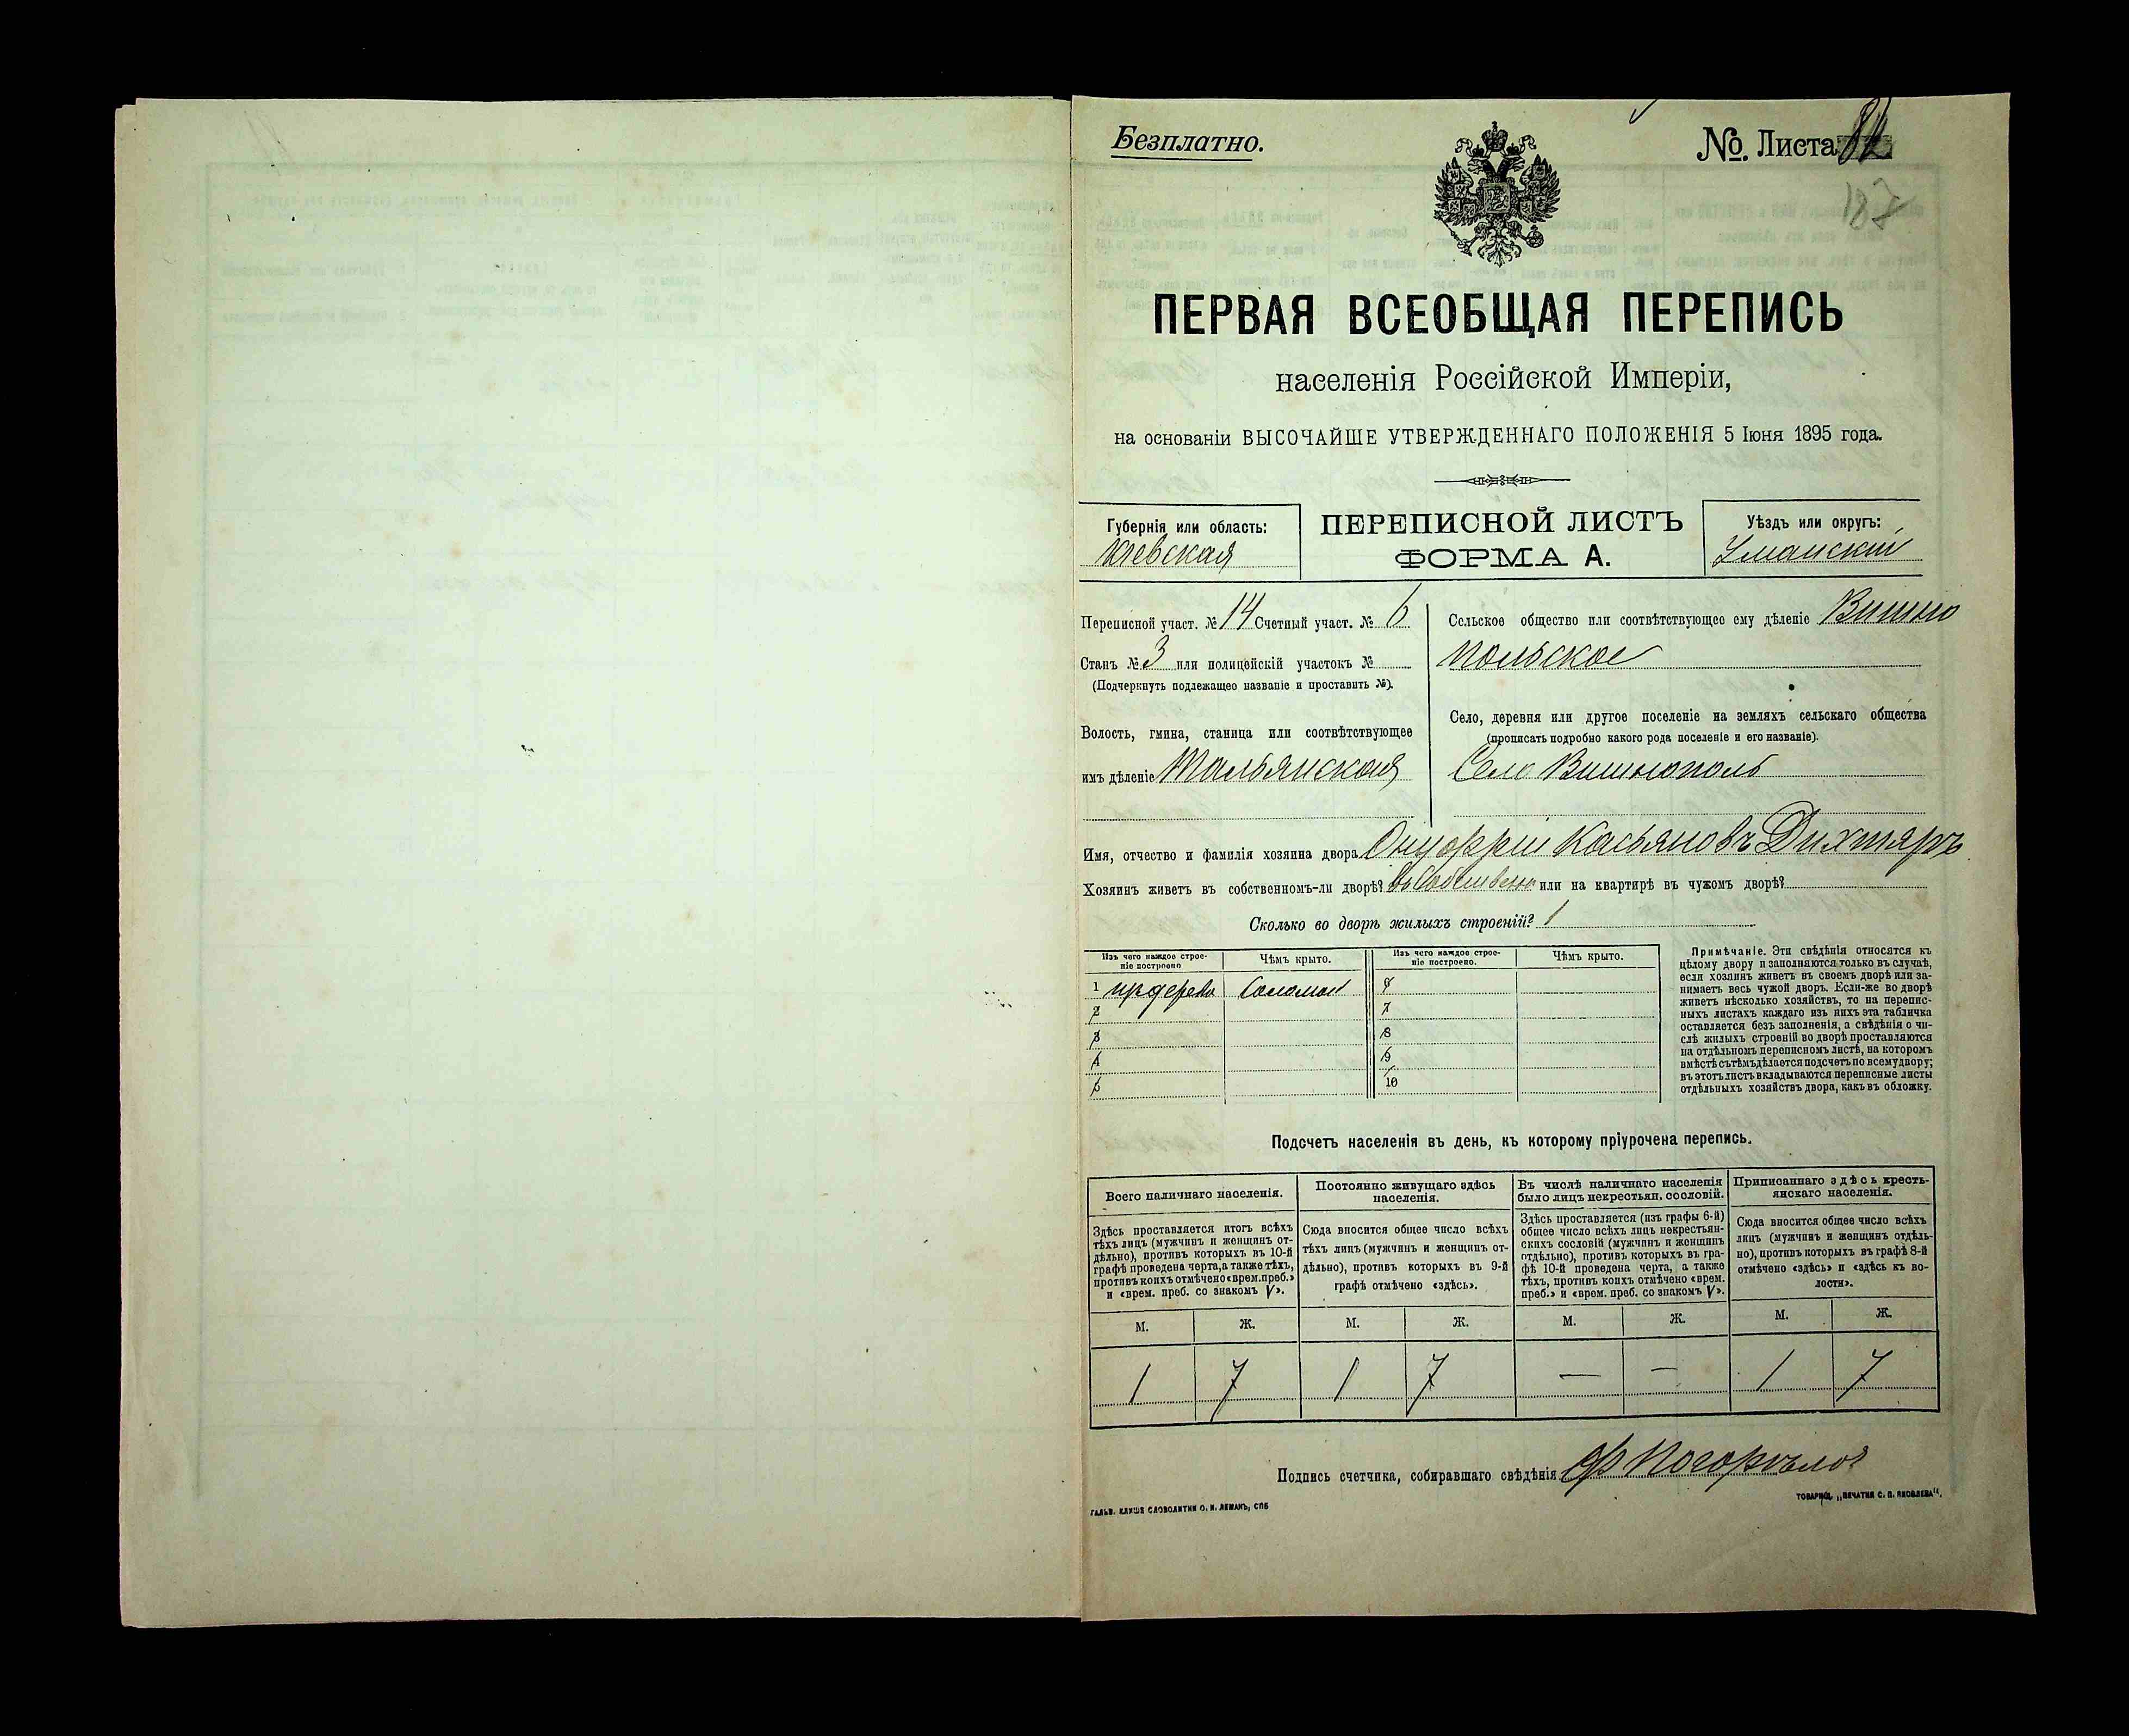 Безплатно.
№. Листа 82
187
ПЕРВАЯ ВСЕОБЩАЯ ПЕРЕПИСЬ
населенія Россійской Имперіи,
на основаніи ВЫСОЧАЙШЕ УТВЕРЖДЕННАГО ПОЛОЖЕНІЯ 5 Іюня 1895 года.
Губернія или область:
Кіевская
ПЕРЕПИСНОЙ ЛИСТЪ
ФОРМА А.
Уѣздъ или округъ:
Уманскій
Переписной участ. № 14 Счетный участ. № 6
Станъ № 3 или полицейскій участокъ №
(Подчеркнуть подлежащее названіе и проставить №).
Волость, гмина, станица или соотвѣтствующее
имъ дѣленіе Тальянская
Сельское общество или соотвѣтствующее ему дѣленіе Вишно
польское
Село, деревня или другое поселеніе на земляхъ сельскаго общества
(прописать подробно какого рода поселеніе и его названіе).
Село Вишнополь
Имя, отчество и фамилія хозяина двора Онуфрій Касьяновъ Дихтяръ
Хозяинъ живетъ въ собственномъ-ли дворѣ? или на квартирѣ въ чужомъ дворѣ?
Сколько во дворѣ жилыхъ строеній? 1
Изъ чего каждое строе-
ніе построено
Чѣмъ крыто.
Изъ чего каждое строе-
ніе построено.
Чѣмъ крыто.
1 изъ дерева Соломой 6
2 7
3 8
4 9
5 10
Примѣчаніе. Эти свѣдѣнія относятся къ
цѣлому двору и заполняются только въ случаѣ,
если хозяинъ живетъ въ своемъ дворѣ или за-
нимаетъ весь чужой дворъ. Если-же во дворѣ
живетъ нѣсколько хозяйствъ, то на перепис-
ныхъ листахъ каждаго изъ нихъ эта табличка
оставляется безъ заполненія, а свѣдѣнія о чи-
слѣ жилыхъ строеній во дворѣ проставляются
на отдѣльномъ переписномъ листѣ, на которомъ
вмѣстѣ съ тѣмъ дѣлается подсчетъ по всему двору;
въ этотъ листъ вкладываются переписные листы
отдѣльныхъ хозяйствъ двора, какъ въ обложку.
Подсчетъ населенія въ день, къ которому пріурочена перепись.
Всего наличнаго населенія.
Здѣсь проставляется итогъ всѣхъ
тѣхъ лицъ (мужчинъ и женщинъ от-
дѣльно), противъ которыхъ въ 10-й
графѣ проведена черта, а также тѣхъ,
противъ коихъ отмѣчено «врем. преб.»
и «врем. преб. со знакомъ V».
Постоянно живущаго здѣсь
населенія.
Сюда вносится общее число всѣхъ
тѣхъ лицъ (мужчинъ и женщинъ от-
дѣльно), противъ которыхъ въ 9-й
графѣ отмѣчено «здѣсь».
Въ числѣ наличнаго населенія
было лицъ некрестьян. сословій.
Здѣсь проставляется (изъ графы 6-й)
общее число всѣхъ лицъ некрестьян-
скихъ сословій (мужчинъ и женщинъ
отдѣльно), противъ которыхъ въ гра-
фѣ 10-й проведена черта, а также
тѣхъ, противъ коихъ отмѣчено «врем.
преб.» и «врем. преб. со знакомъ V».
Приписаннаго здѣсь кресть-
янскаго населенія.
Сюда вносится общее число всѣхъ
лицъ (мужчинъ и женщинъ отдѣль-
но), противъ которыхъ въ графѣ 8-й
отмѣчено «здѣсь» и «здѣсь къ во-
лости».
М. Ж. М. Ж. М. Ж. М. Ж.
1 7 1 7 — — 1 7
Подпись счетчика, собиравшаго свѣдѣнія
ГАЛЬВ. КЛИШЕ СЛОВОЛИТНИ О. И. ЛЕМАНЪ, СПБ
ТОВАРИЩ. „ПЕЧАТНЯ С. П. ЯКОВЛЕВА".